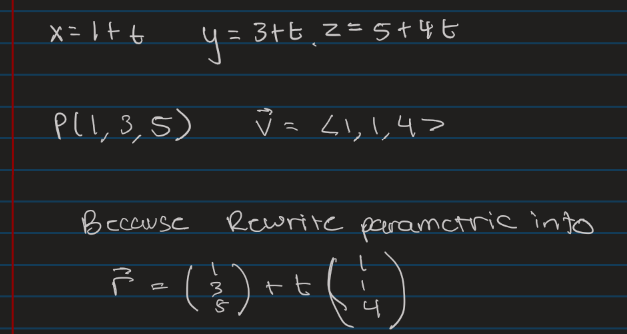 x = 1 + t y = 3 + t, z = 5 + 4t
P(1, 3, 5) v⃗ = <1, 1, 4>
Because Rewrite parametric into
r⃗ = (1 3 5) + t (1 1 4)